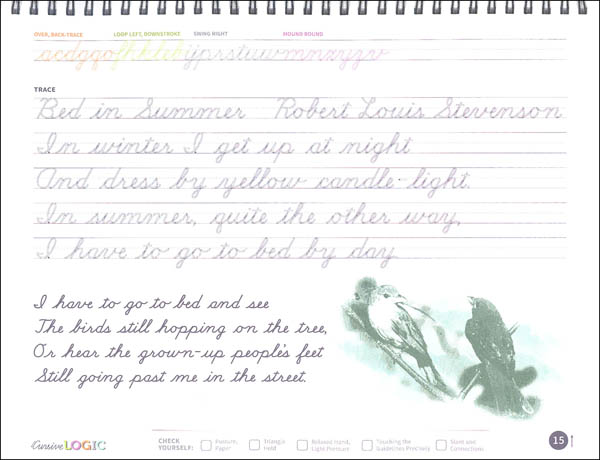 OVER, BACK-TRACE LOOP LEFT, DOWNSTROKE SWING RIGHT MOUND ROUND
acdgqofhklebijprstuwmnxyzv
TRACE
Bed in Summer Robert Louis Stevenson
In winter I get up at night
And dress by yellow candle-light.
In summer, quite the other way,
I have to go to bed by day.
I have to go to bed and see
The birds still hopping on the tree,
Or hear the grown-up people's feet
Still going past me in the street.
Cursive LOGIC
CHECK YOURSELF: Posture, Paper Triangle Hold Relaxed Hand, Light Pressure Touching the Guidelines Precisely Slant and Connections
15